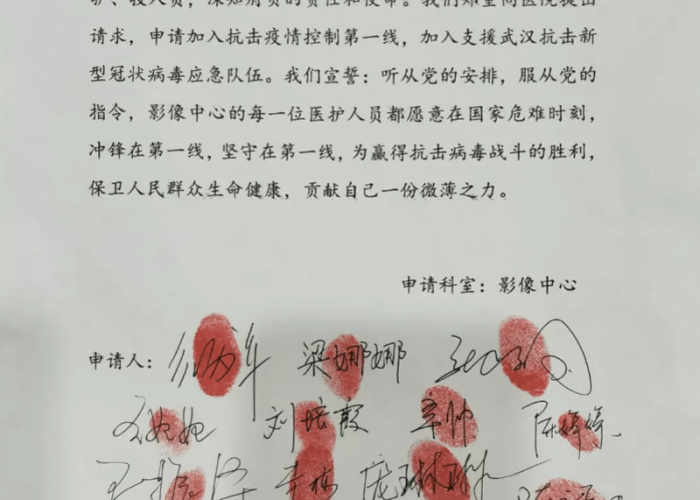 护、技人员，深知肩负的责任和使命。我们郑重向医院提出
请求，申请加入抗击疫情控制第一线，加入支援武汉抗击新
型冠状病毒应急队伍。我们宣誓：听从党的安排，服从党的
指令，影像中心的每一位医护人员都愿意在国家危难时刻，
冲锋在第一线，坚守在第一线，为赢得抗击病毒战斗的胜利，
保卫人民群众生命健康，贡献自己一份微薄之力。
申请科室：影像中心
申请人： 梁娜娜
刘培霞 辛帅 陈婷婷
庞琳琳